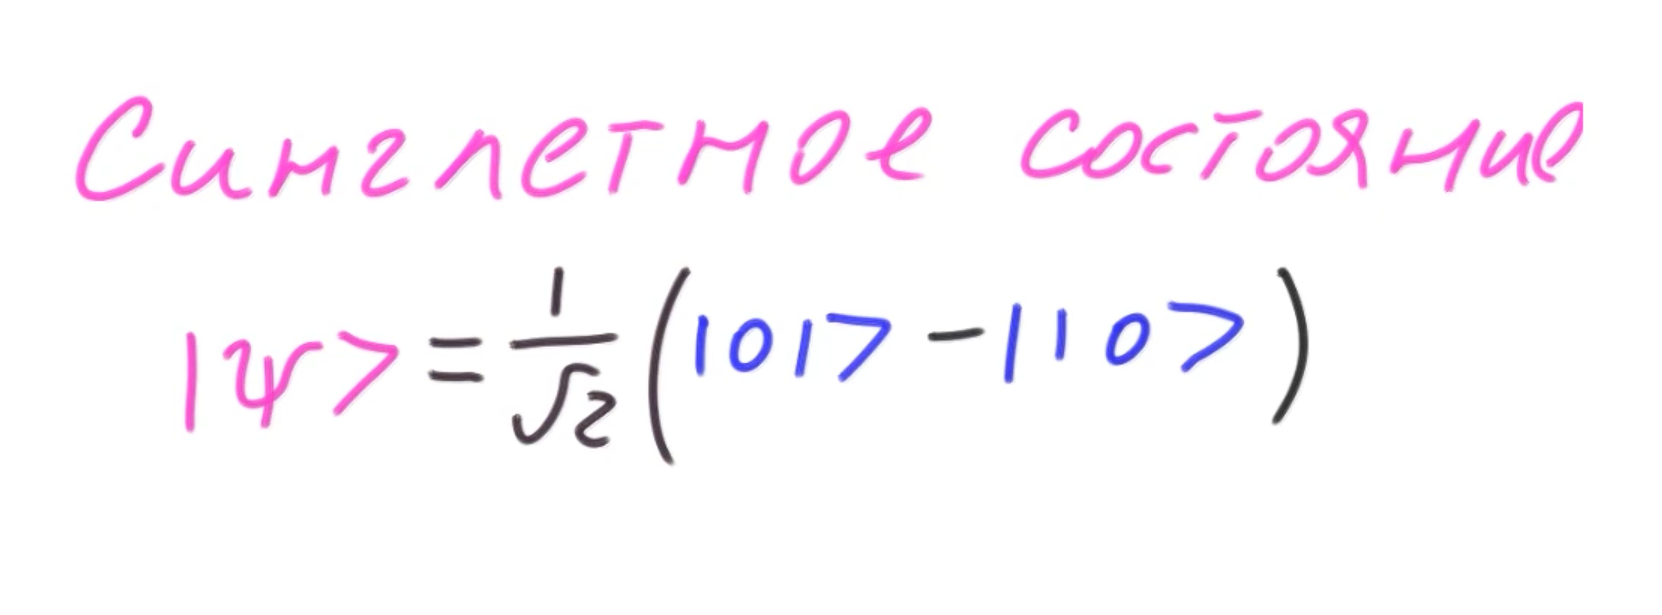 Синглетное состояние
|ψ> = 1/√2 (|01> - |10>)